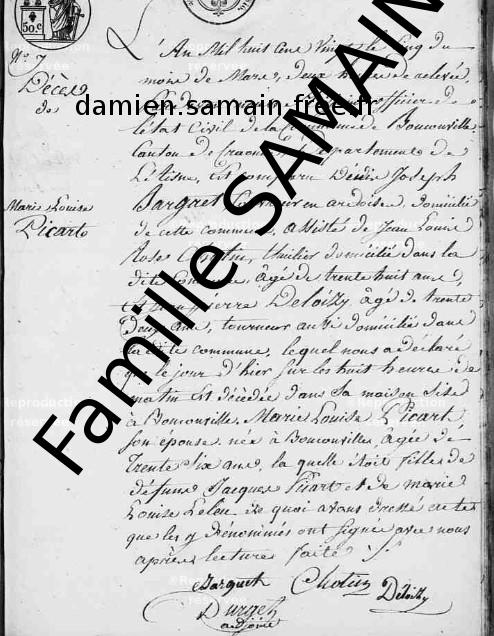 50c
N° 7
Décès
de
Marie Louise
Picart
L'An Mil huit cent Vingt le Cinq du
mois de Mars, deux heures de relevée,
officier de
l'état Civil de la Commune de Bouconville
Canton de Craonne, département de
L'Aisne, est comparu Désiré Joseph
Barguet Couvreur en ardoise, domicilié
de cette commune, assisté de Jean Louis
Rose domicilié dans la
dite Commune, âgé de trente huit ans,
et Jean pierre Deloizy, âgé de trente
Deux ans, tourneur aussi domicilié dans
la dite commune, lequel nous a déclaré
que le jour d'hier sur les huit heures de
matin Est décédée dans Sa maison Sise
à Bouconville, Marie Louise Picart
son épouse née à Bouconville, agée de
Trente Six ans, la quelle étoit fille de
défunt Jacques Picart et de marie
Louise Leleu de quoi avons dressé acte
que les y dénommés ont signé avec nous
après lecture faite ./.
Barguet Deloizy
adjoint
damien.samain.free.fr
Famille SAMAIN
Reproduction
réservée